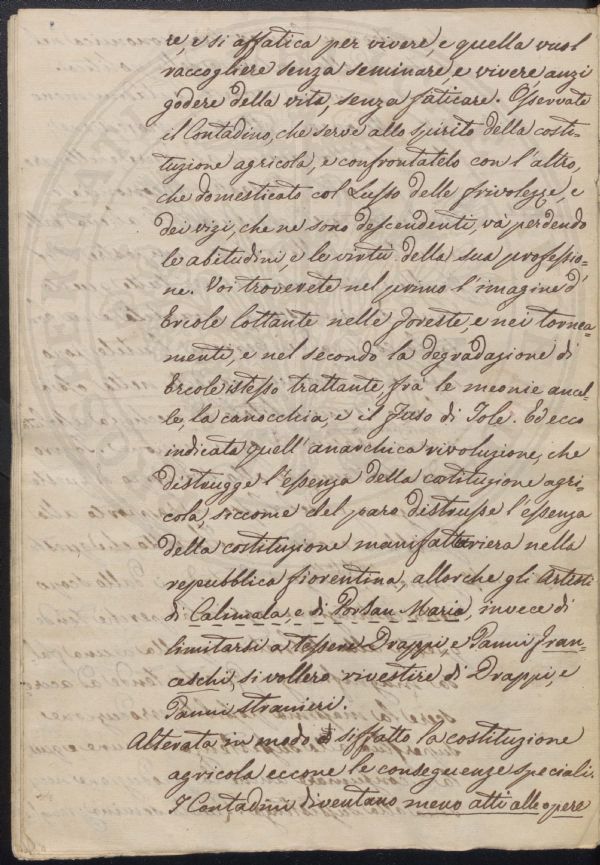 re, e si affatica per vivere, e quella vuol
raccogliere senza seminare, e vivere anzi
godere della vita, senza faticare. Osservate
il Contadino, che serve allo spirito della costi-
tuzione agricola, e confrontatelo con l'altro,
che domesticato col Lusso delle frivolezze, e
dei vizi, che ne sono descendenti, và perdendo
le abitudini, e le virtù della sua professio-
ne. Voi troverete nel primo l'imagine d'
Ercole lottante nelle foreste, e nei tornea-
menti, e nel secondo la degradazione di
Ercole istesso trattante frà le meonie ancel-
le, la canocchia, e il fuso di Iole. Ed ecco
indicata quell'anarchica rivoluzione, che
distrugge l'essenza della costituzione agri-
cola, siccome del paro distrusse l'essenza
della costituzione manifatturiera nella
repubblica fiorentina, allorche gli Artisti
di Calimala, e di Por San Maria, invece di
limitarsi a tessere Drappi e Panni fran-
ceschi, si vollero rivestire di Drappi, e
Panni stranieri.
Alterata in modo siffatto la costituzione
agricola eccone le conseguenze speciali.
I Contadini diventano meno atti alle opere